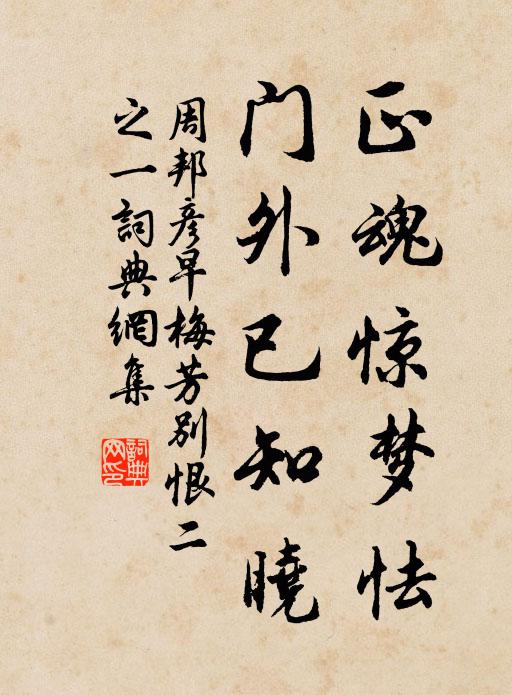 正魂惊梦怯
门外已知曉
周邦彦早梅芳别恨二
之一詞典網集
詞典
网印